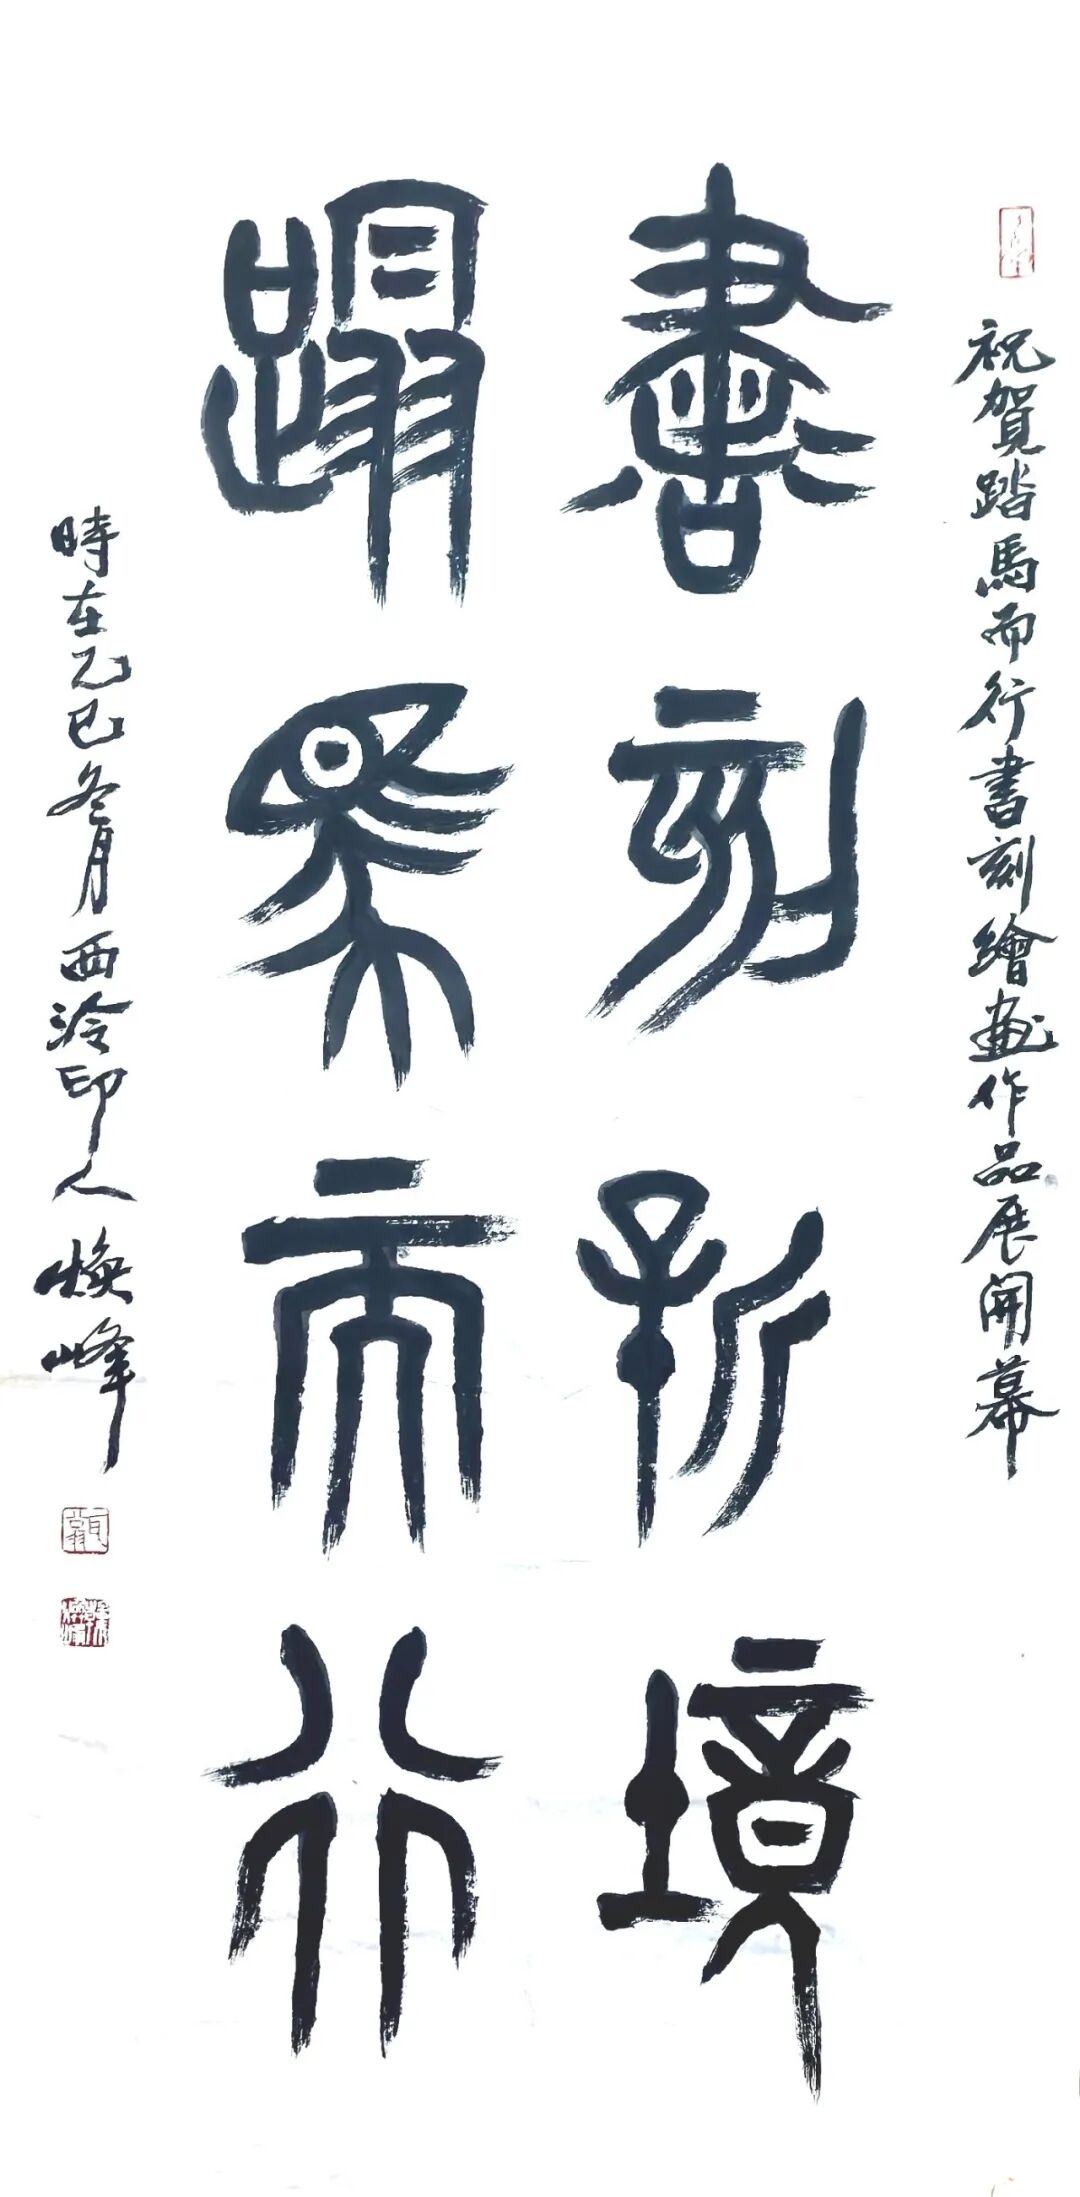 祝賀踏馬而行書刻繪畫作品展開幕
書刻新境
蹋馬而行
時在乙巳冬月西泠印人煥峰